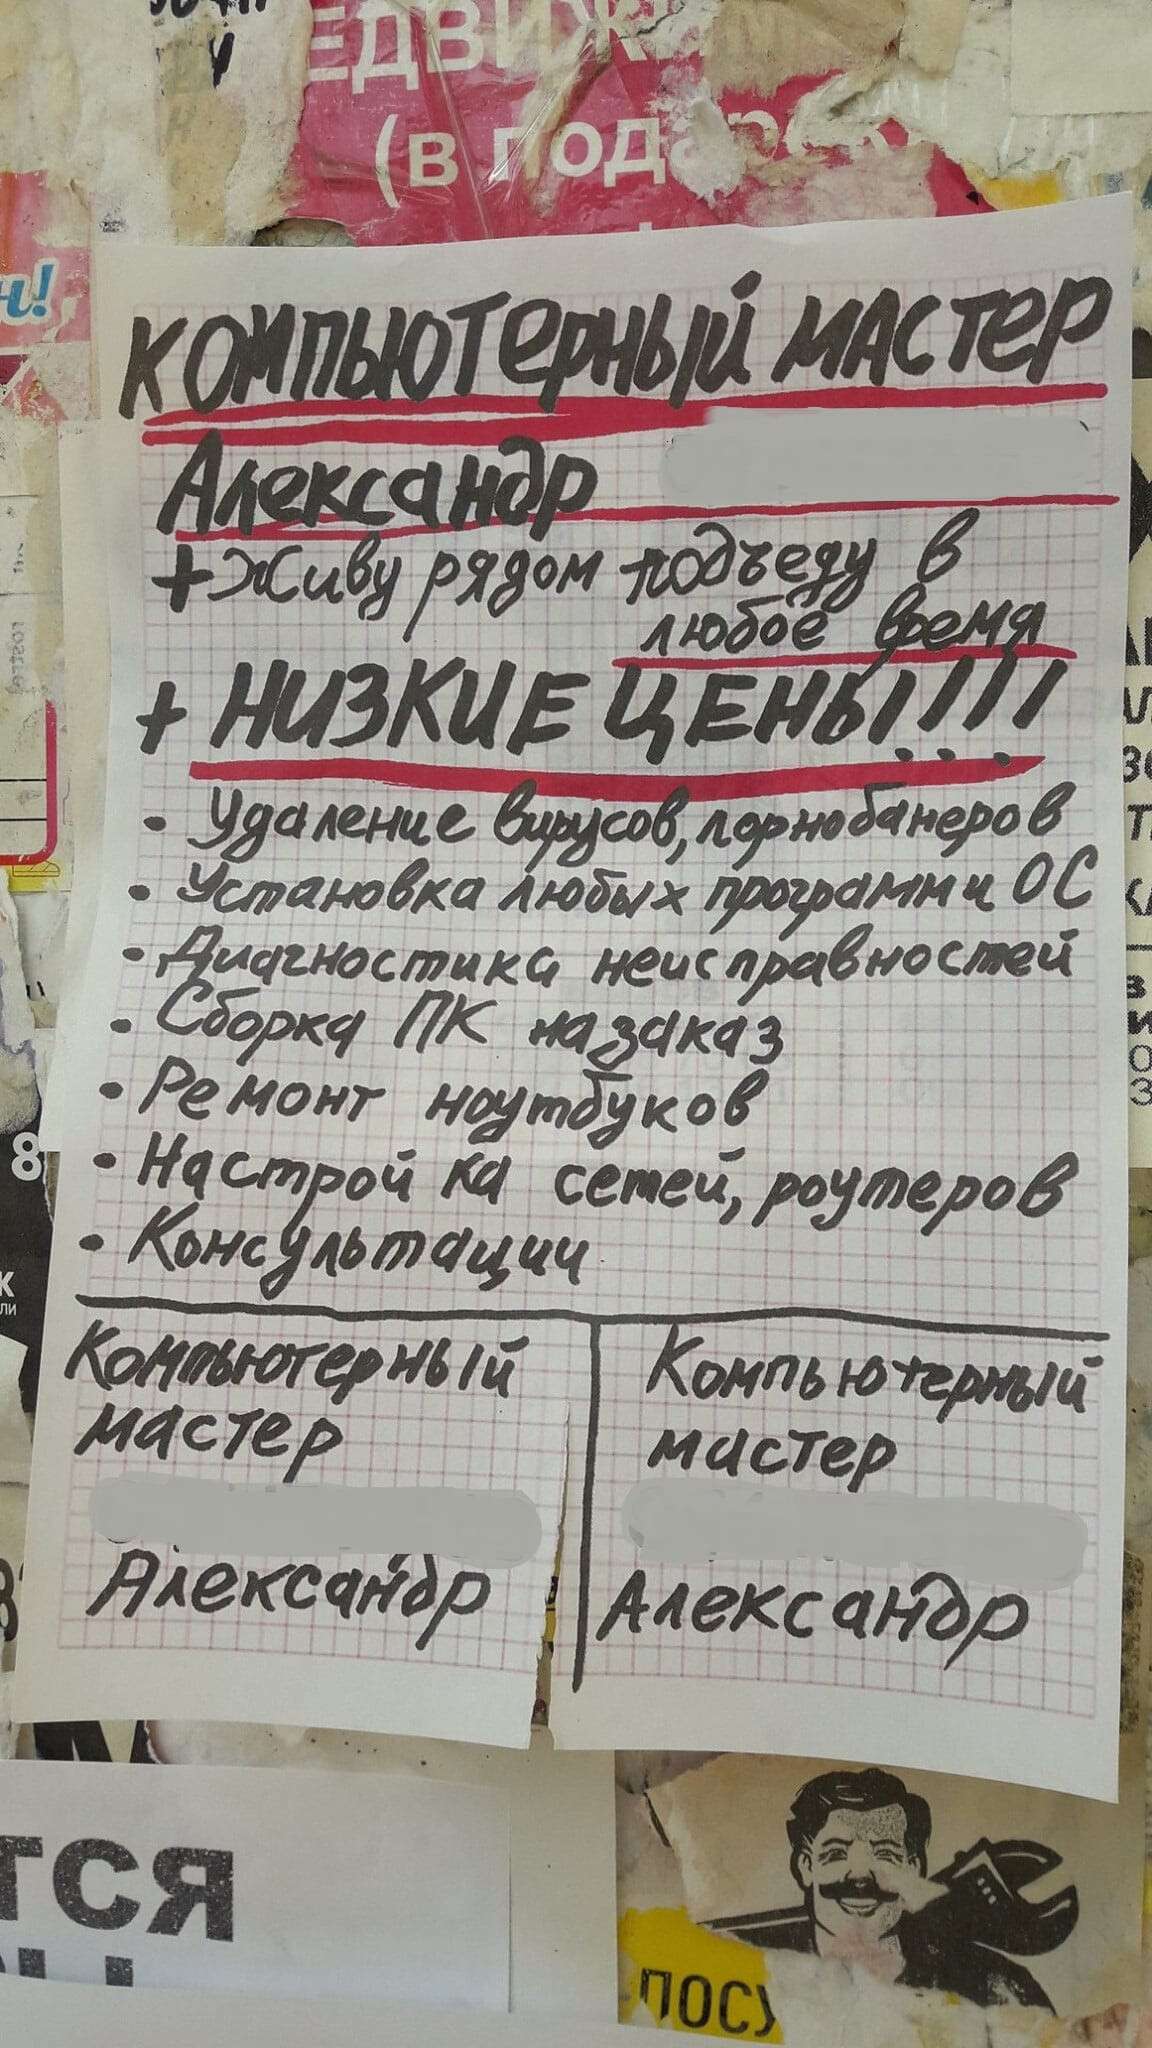 (в подарок
н!
КОМПЬЮТЕРНЫЙ МАСТЕР
Александр
+ Живу рядом подъеду в
любое время
+ НИЗКИЕ ЦЕНЫ!!!!
• Удаление вирусов, порнобанеров
• Установка любых программ и ОС
• Диагностика неисправностей
• Сборка ПК на заказ
• Ремонт ноутбуков
• Настройка сетей, роутеров
• Консультации
Компьютерный
мастер
Александр
Компьютерный
мастер
Александр
8
тся
ПОСУ